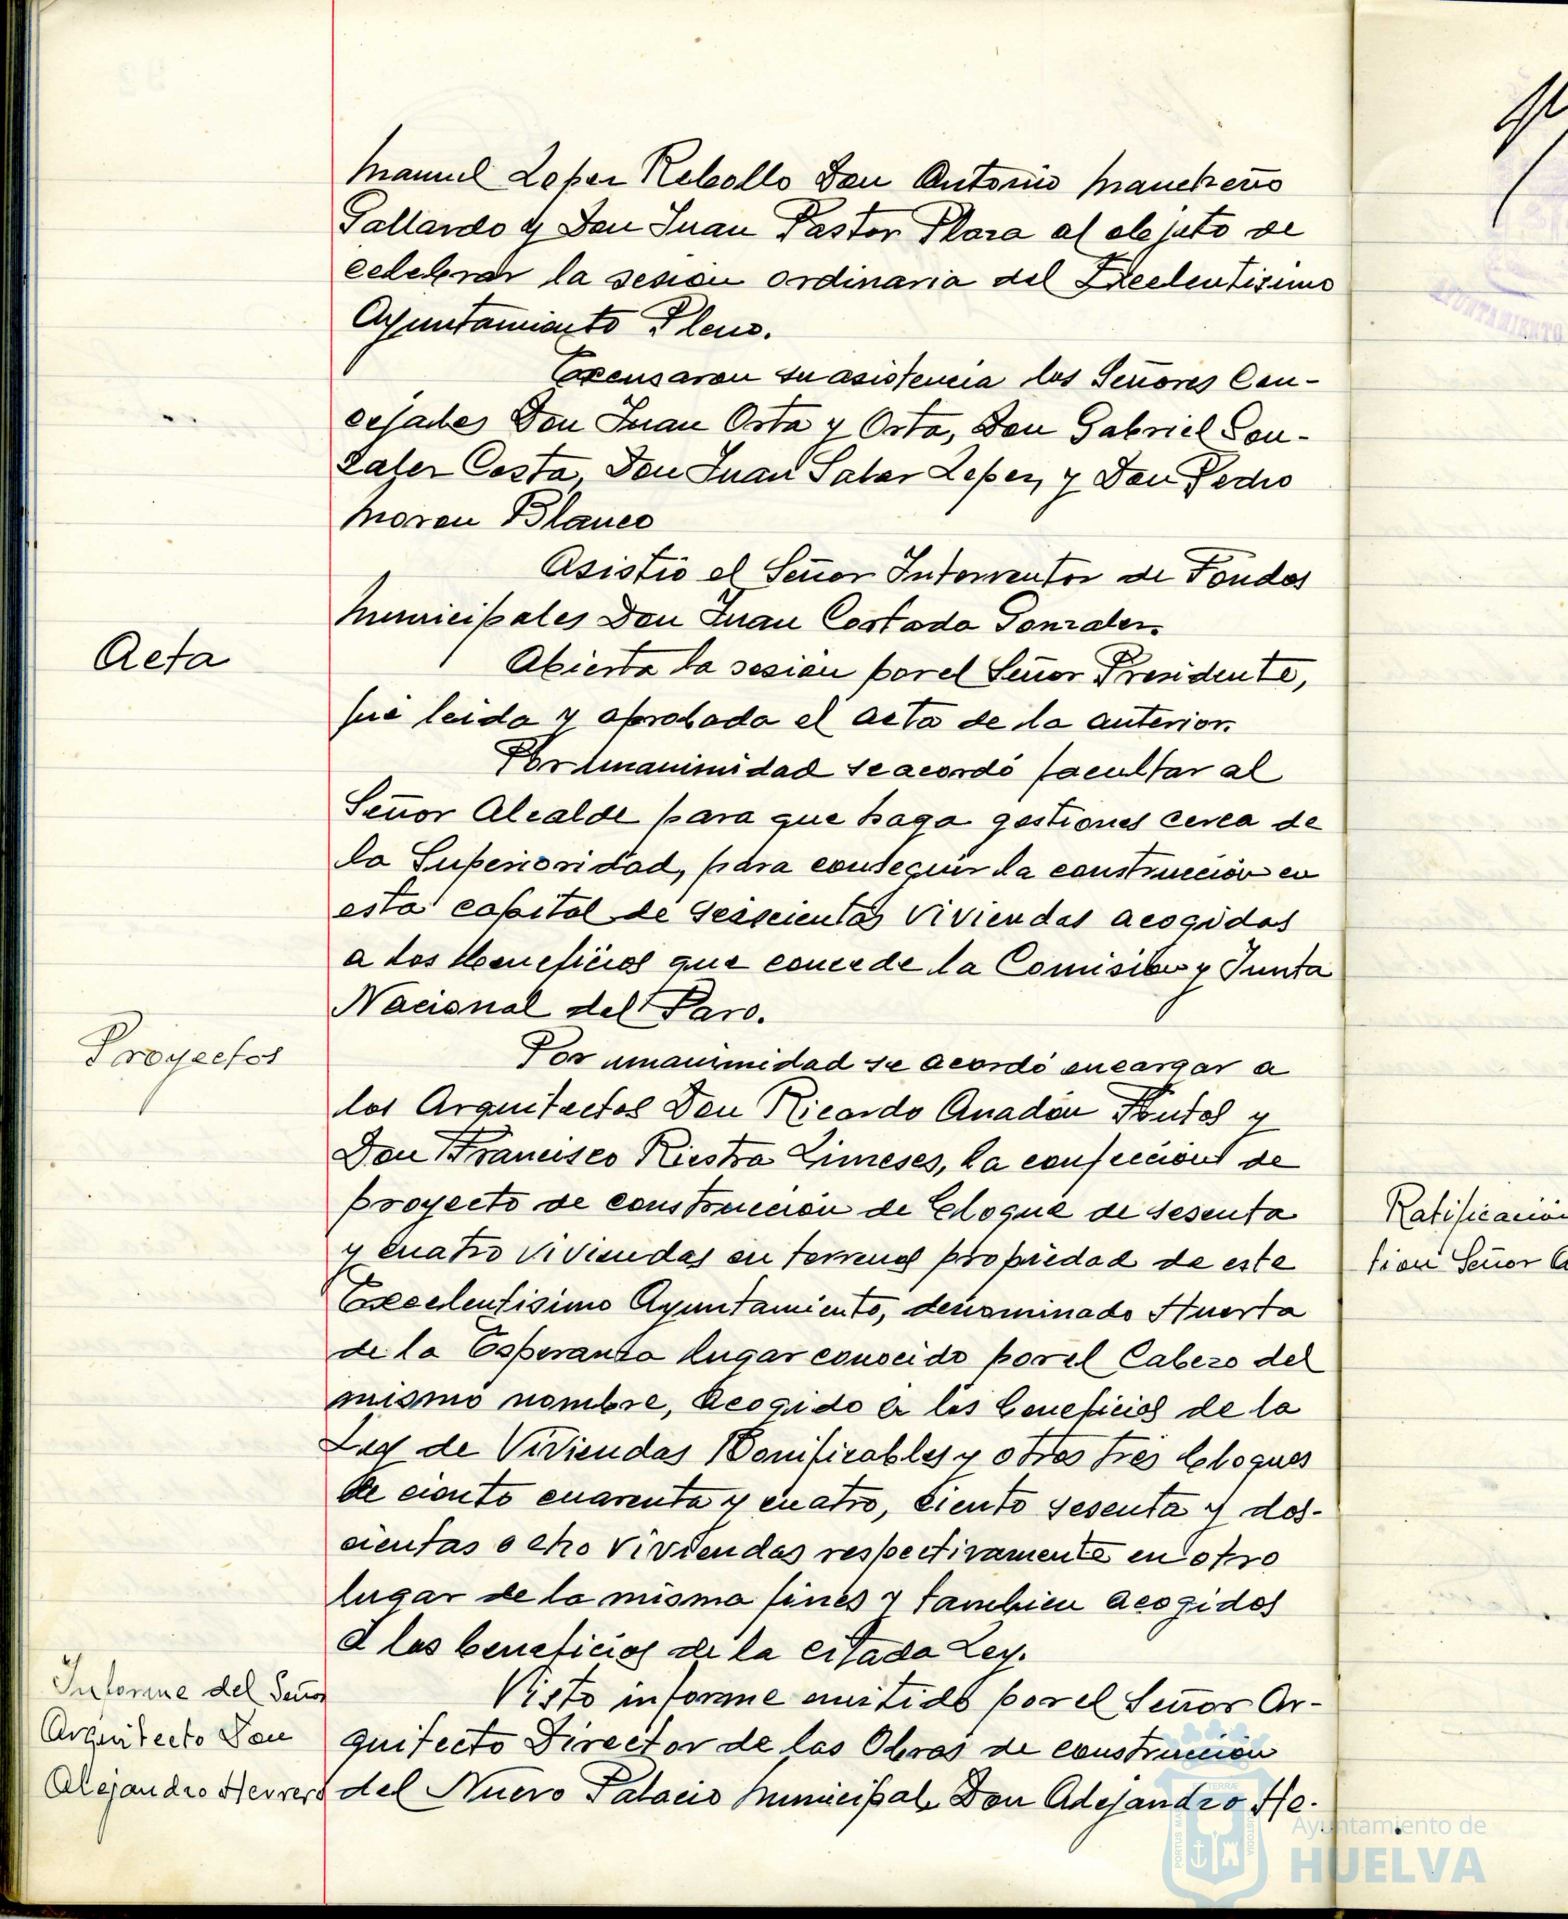 Manuel Lopez Rebollo Don Antonio Mancheño
Gallardo y Don Juan Pastor Plaza al objeto de
celebrar la sesion ordinaria del Excelentisimo
Ayuntamiento Pleno.
Excusaron su asistencia los Señores Con-
cejales Don Juan Orta y Orta, Don Gabriel Gon-
zalez Costa, Don Juan Salas Lopez, y Don Pedro
Moron Blanco
Asistió el Señor Interventor de Fondos
Municipales Don Juan Costado Gonzalez.
Acta
Abierta la sesion por el Señor Presidente,
fué leida y aprobada el acta de la anterior.
Por unanimidad se acordó facultar al
Señor Alcalde para que haga gestiones cerca de
la Superioridad, para conseguir la construcción en
esta capital de seiscientas viviendas acogidas
a los beneficios que concede la Comision y Junta
Nacional del Paro.
Proyectos
Por unanimidad se acordó encargar a
los Arquitectos Don Ricardo Anadón Frutos y
Don Francisco Riestra Limeses, la confeccion de
proyecto de construcción de bloque de sesenta
y cuatro viviendas en terrenos propiedad de este
Excelentisimo Ayuntamiento, denominado Huerta
de la Esperanza lugar conocido por el Cabezo del
mismo nombre, acogido a los beneficios de la
Ley de Viviendas Bonificables y otros tres bloques
de ciento cuarenta y cuatro, ciento sesenta y dos-
cientas ocho viviendas respectivamente en otro
lugar de la misma fines y tambien acogidos
a los beneficios de la citada Ley.
Informe del Señor
Arquitecto Don
Alejandro Herrero
Visto informe emitido por el Señor Ar-
quitecto Director de las Obras de construcción
del Nuevo Palacio Municipal, Don Alejandro He-
Ratificación
tion Señor A
AYUNTAMIENTO
Ayuntamiento de
HUELVA